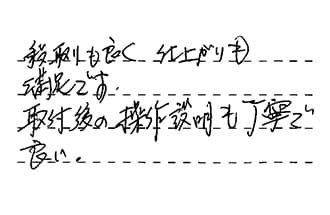 段取りも良く 仕上がりも
満足です.
取付後の操作説明も丁寧で
良い。